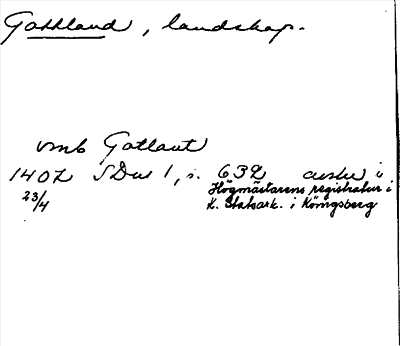 Gottland, landskap.
vmb Gotlant
1407 SDns 1, s. 632 avskr i
23/4 Högmästarens registratur i
K. Statsark. i Königsberg